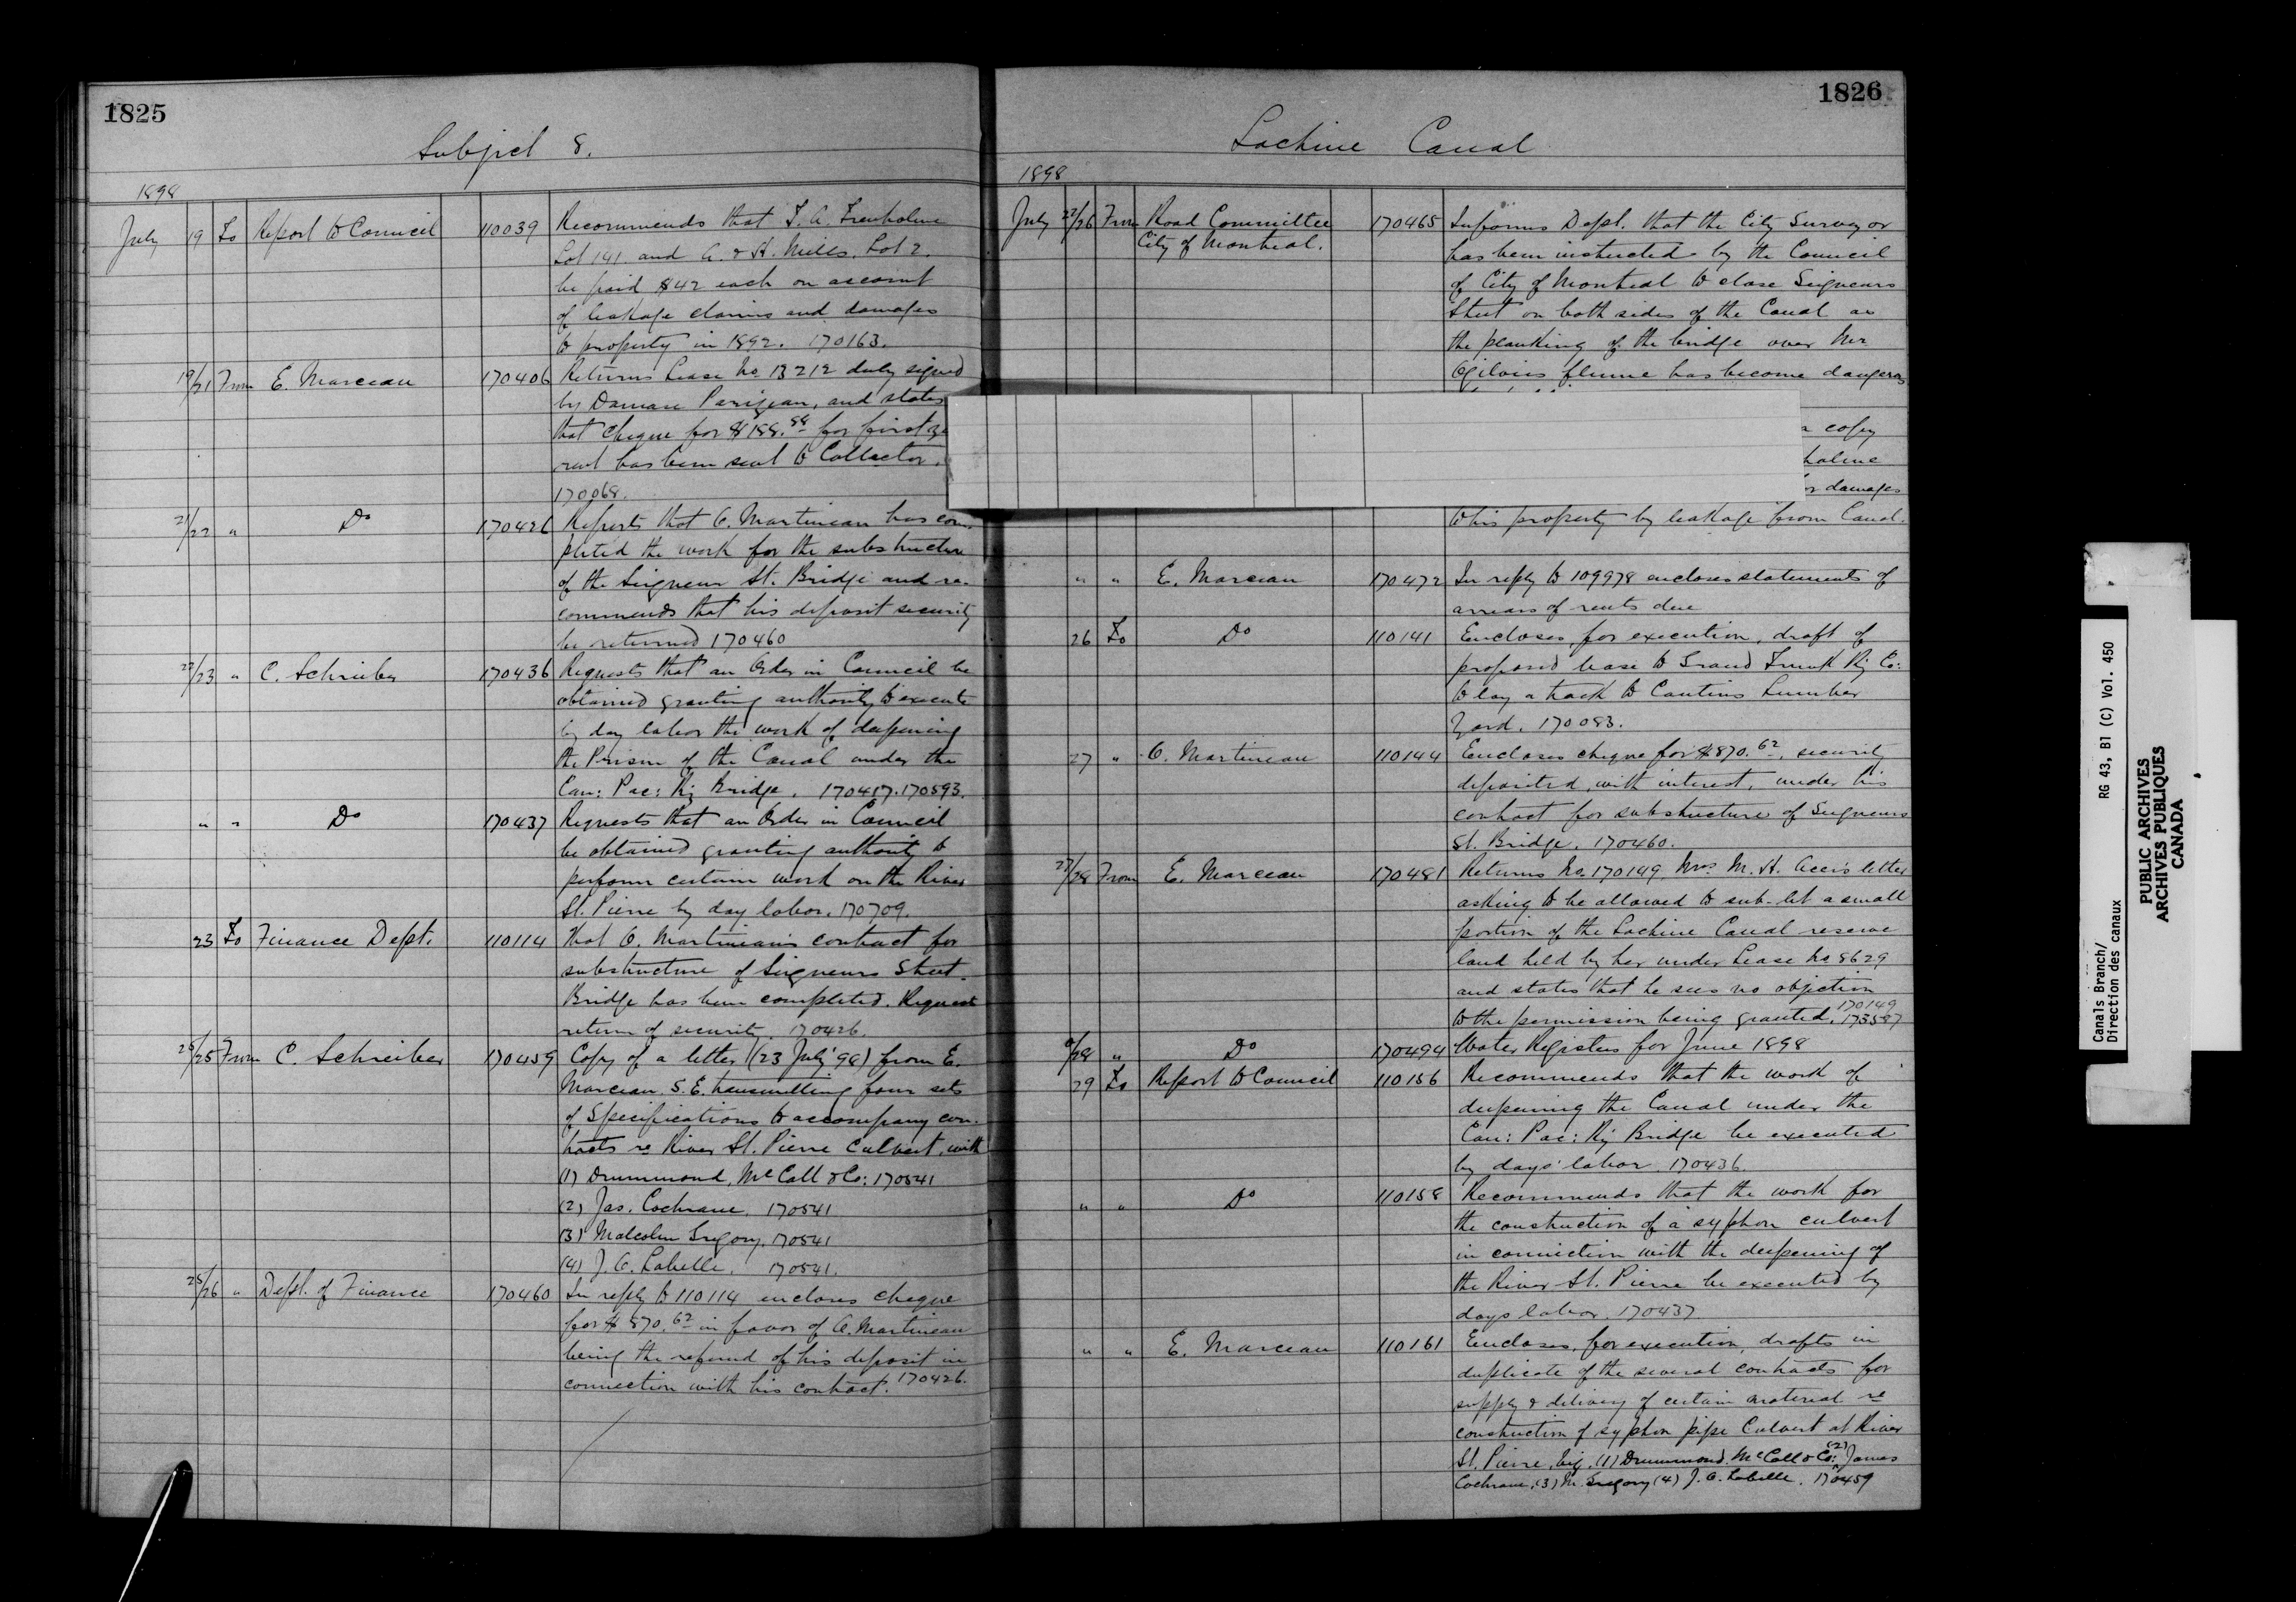 1825
Subject 8.
1898
July 19 To Report to Council 110039 Recommends that T. A. Trenholme
Lot 141 and A. & H. Mills. Lot 2.
be paid $42 each on account
of leakage claims and damages
to property in 1892. 170163.
19/21 From E. Marceau 170406 Returns Lease No 13212 duly signed
by Damase Parizeau, and states
that cheque for for first
rent has been sent to Collector.
170068.
21/22 " Do 170426 Reports that O. Martineau has com-
pleted the work for the substructure
of the Seigneur St. Bridge and re-
commends that his deposit security
be returned 170460
22/23 " C. Schreiber 170436 Requests that an Order in Council be
obtained granting authority to execute
by day labor the work of deepening
the Prism of the Canal under the
Can: Pac: Ry Bridge. 170417. 170593.
" " Do 170437 Requests that an Order in Council
be obtained granting authority to
perform certain work on the River
St. Pierre by day labor. 170709.
23 To Finance Dept. 110114 That O. Martineau's contract for
substructure of Seigneurs Street
Bridge has been completed. Request
return of security. 170426.
25/25 From C. Schreiber 170459 Copy of a letter (23 July '98) from E.
Marceau. S. E. transmitting four sets
of Specifications to accompany con-
tracts re River St. Pierre Culvert, with
(1) Drummond, McCall & Co: 170541
(2) Jas. Cochrane. 170541
(3) Malcolm Gregory. 170541
(4) J. O. Labelle. 170541.
25/26 " Dept. of Finance 170460 In reply to 110114 encloses cheque
for $870.62 in favor of O. Martineau
being the refund of his deposit in
connection with his contract. 170426.
1826
Lachine Canal
1898
July 22/26 From Road Committee 170465 Informs Dept. that the City Surveyor
City of Montreal. has been instructed by the Council
of City of Montreal to close Seigneurs
Street on both sides of the Canal as
the planking of the bridge over
Ogilvies flume has become dangerous
a copy
holme
or damages
to his property by leakage from Canal.
" " E. Marceau 170472 In reply to 109978 encloses statements of
arrears of rents due
26 To Do 110141 Encloses, for execution, draft of
proposed lease to Grand Trunk Ry Co:
to lay a track to Cantins Lumber
Yard. 170083.
27 " O. Martineau 110144 Encloses cheque for $870.62, security
deposited, with interest, under his
contract for substructure of Seigneurs
St. Bridge. 170460.
27/28 From E. Marceau 170481 Returns No 170149. Mrs M. H. letter
asking to be allowed to sub-let a small
portion of the Lachine Canal reserve
land held by her under Lease No 8629
and states that he sees no objection
to the permission being granted. 170149 173587
/28 " Do 170494 Water Registers for June 1898
29 To Report to Council 110156 Recommends that the work of
deepening the Canal under the
Can: Pac: Ry Bridge be executed
by days labor. 170436.
" " Do 110158 Recommends that the work for
the construction of a syphon culvert
in connection with the deepening of
the River St. Pierre be executed by
days labor. 170437
" " E. Marceau 110161 Encloses, for execution, drafts in
duplicate of the several contracts for
supply & delivery of certain material re
construction of syphon pipe Culvert at River
St. Pierre, viz. (1) Drummond. McCall & Co: (2) James
Cochrane, (3) M. Gregory (4) J. O. Labelle. 170459
Canals Branch/
Direction des canaux
RG 43, B1 (C) Vol. 450
PUBLIC ARCHIVES
ARCHIVES PUBLIQUES
CANADA